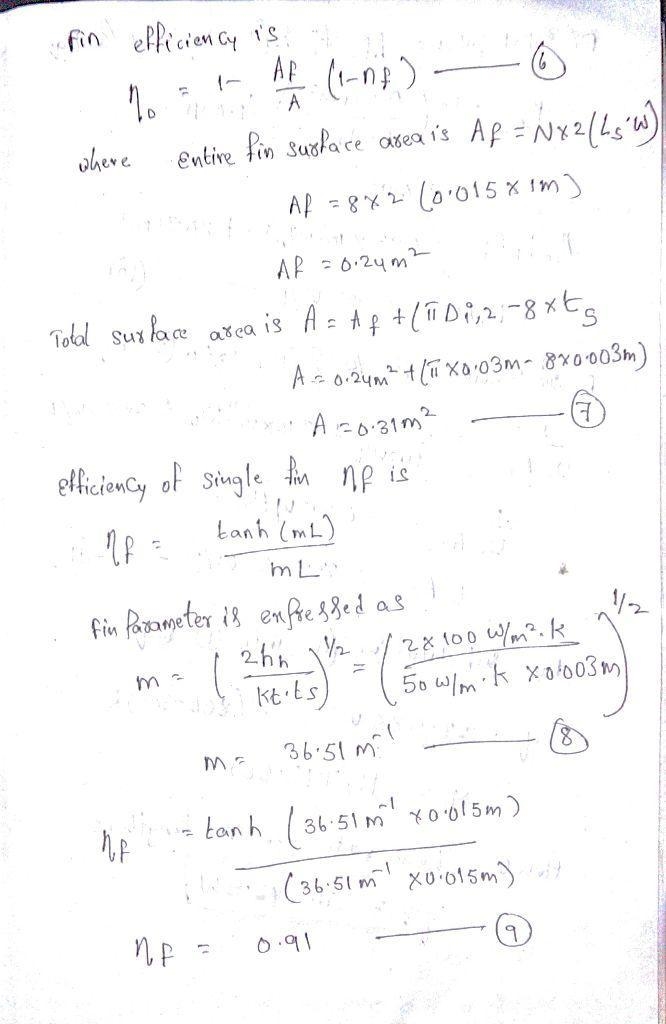 Fin efficiency is
η₀ = 1- Af/A (1-ηf) — ⑥
where Entire fin surface area is Af = N×2(Ls·W)
Af = 8×2 (0.015 × 1m)
Af = 0.24m²
Total surface area is A = Af + (πDi,2 - 8×ts
A = 0.24m² + (π×0.03m - 8×0.003m)
A = 0.31m² — ⑦
Efficiency of single fin ηf is
ηf = tanh (mL) / mL
fin Parameter is expressed as
m = (2hh / Kt·ts)^1/2 = (2×100 W/m².k / 50 W/m·k × 0.003m)^1/2
m = 36.51 m⁻¹ — ⑧
ηf = tanh (36.51 m⁻¹ × 0.015m) / (36.51 m⁻¹ × 0.015m)
ηf = 0.91 — ⑨